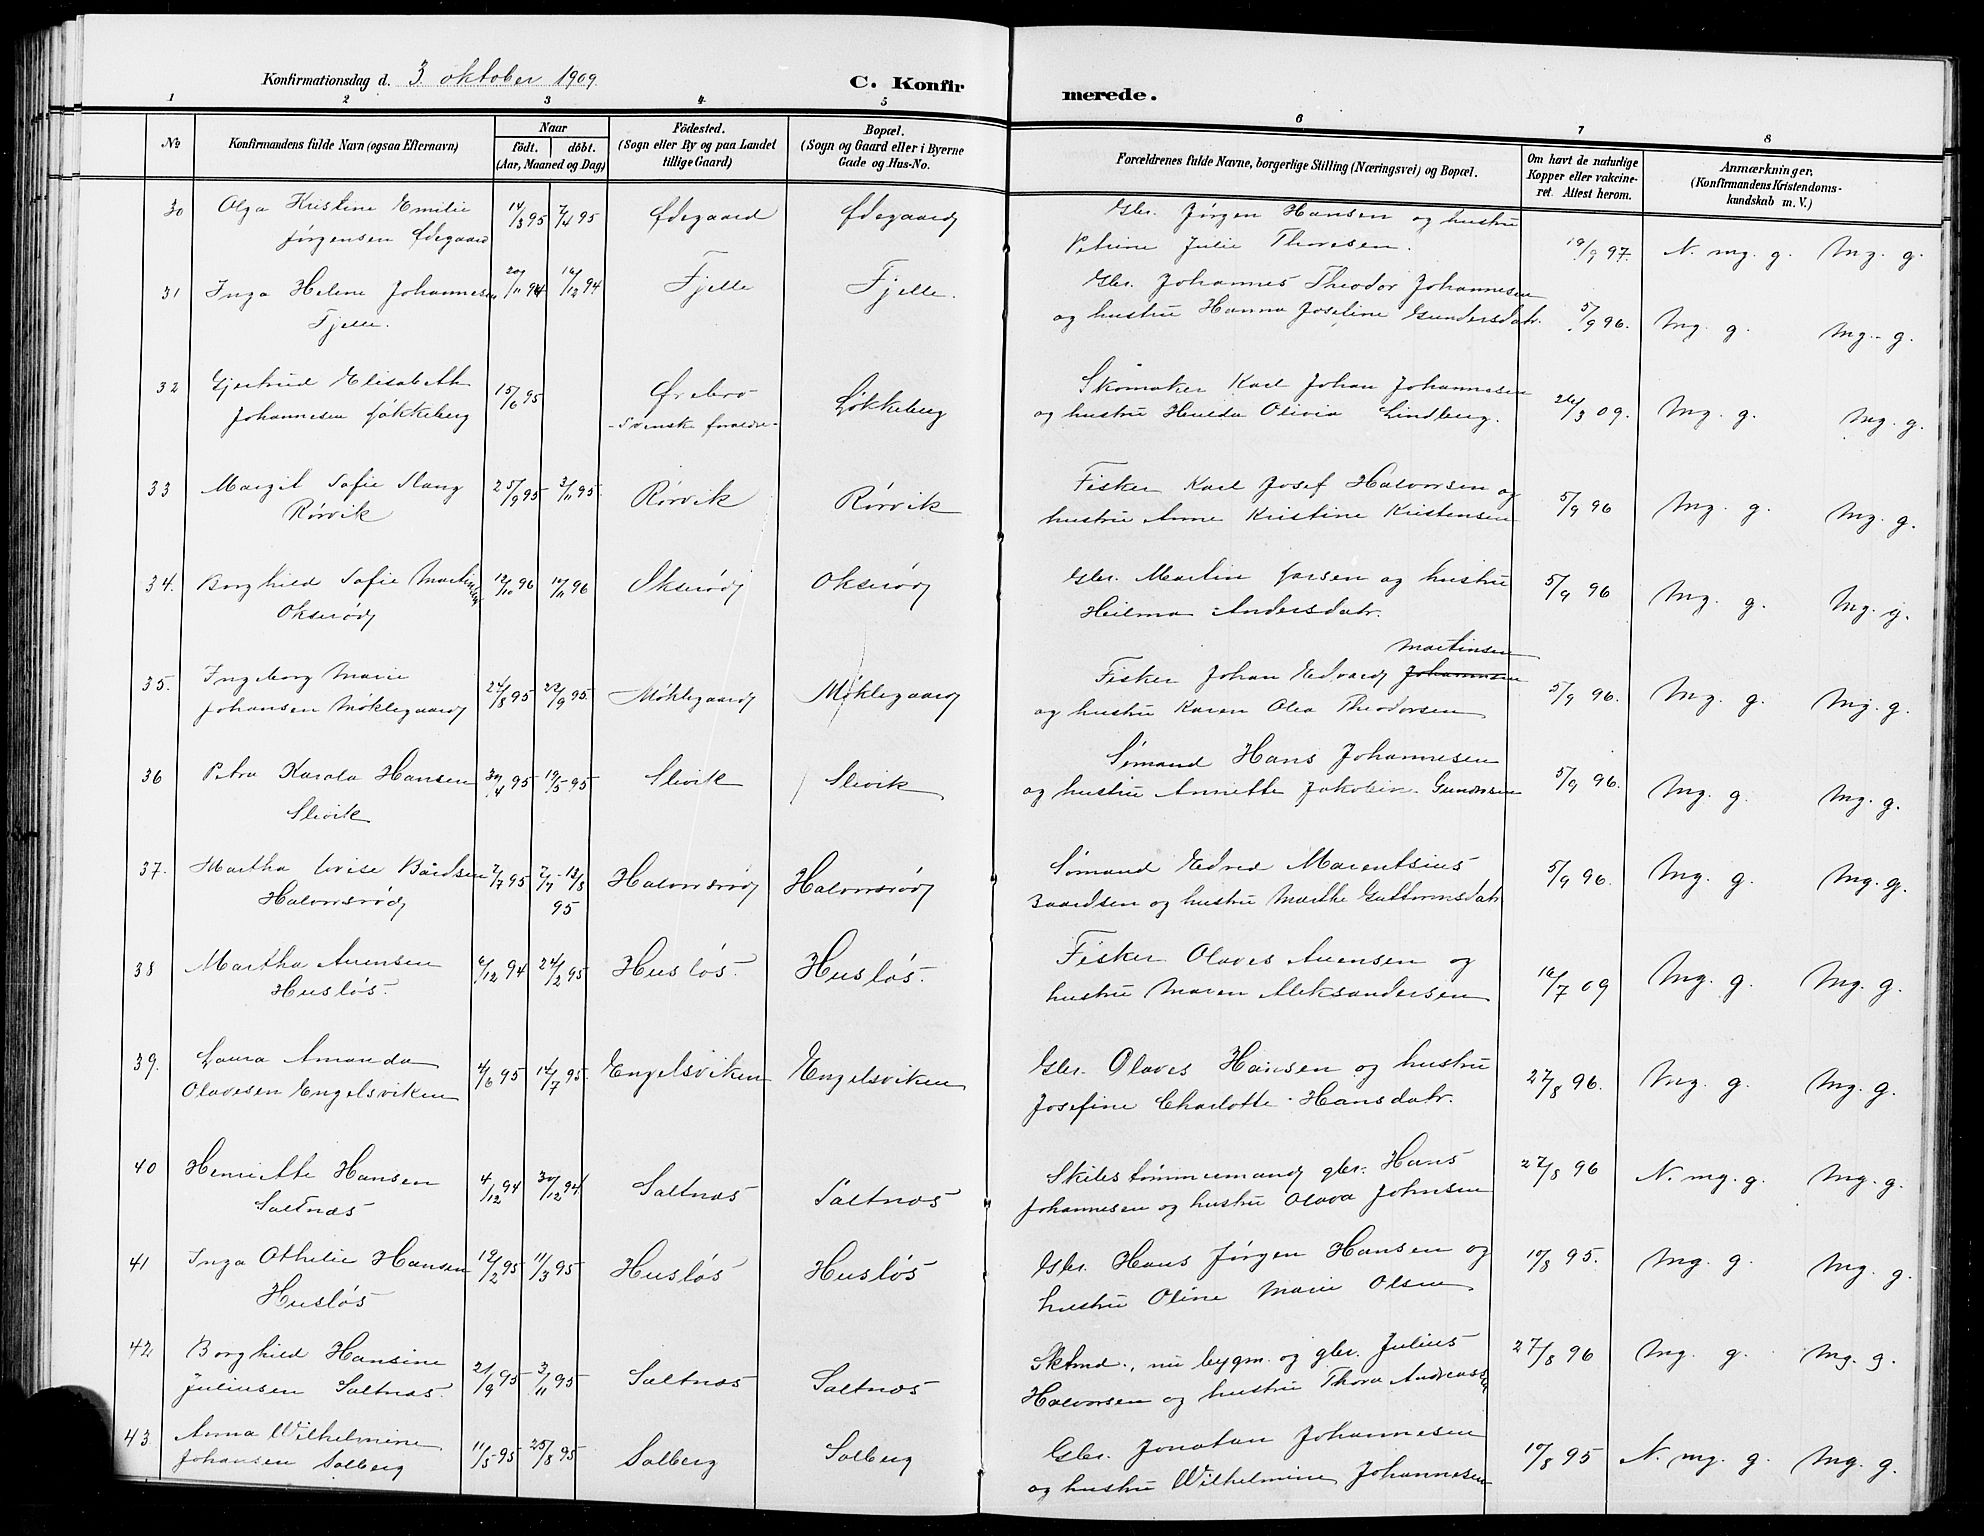 Konfirmationsdag d. 3 oktober 1909.
C. Konfirmerede.
1 2 3 4 5 6 7 8
No
Konfirmandens fulde Navn (ogsaa Efternavn)
Naar
födt. döbt.
(Aar, Maaned og Dag)
Födested.
(Sogn eller By og paa Landet
tillige Gaard)
Bopæl.
(Sogn og Gaard eller i Byerne
Gade og Hus-No.
Forældrenes fulde Navne, borgerlige Stilling (Næringsvei) og Bopæl.
Om havt de naturlige
Kopper eller vakcine-
ret. Attest herom.
Anmærkninger.
(Konfirmandens Kristendoms-
kundskab m. V.)
30 Olga Kristine Emilie 14/3 95 7/4 95 Ødegaard Ødegaard Gbr. Jørgen Hansen og hustru
Jørgensen Ødegaard Petrine Julie Thoresen. 19/9 97. N. mg. g. Mg. g.
31 Inga Helene Johannesen 20/11 94 16/12 94 Fjelle Fjelle. Gbr. Johannes Theodor Johannesen
Fjelle. og hustru Hanna Josefine Gundersdatr. 5/9 96. Mg. g. Mg. g.
32 Gjertrud Elisabeth 15/6 95 Ørebro Løkkeberg Skomaker Karl Johan Johannesen
Johannesen Løkkeberg - Svenske forældre - og hustru Hulda Olivia Lindberg. 26/3 09. Mg. g. Mg. g.
33 Margit Sofie Stang 25/9 95 3/11 95 Rørvik Rørvik Fisker Karl Josef Halvorsen og
Rørvik hustru Anne Kristine Kristensen 5/9 96 Mg. g. Mg. g.
34. Borghild Sofie Martinsen 12/10 96 14/11 96 Økserød Økserød Gbr. Martin Larsen og hustru
Økserød Heilma Andersdatr. 5/9 96 Mg. g. Mg. g.
35. Ingeborg Marie 24/8 95 22/9 95 Møklegaard Møklegaard Fisker Johan Edvard Johannesen Martinsen
Johansen Møklegaard og hustru Karen Olea Theodorsen 5/9 96. Mg. g. Mg. g.
36 Petra Karola Hansen 30/4 95 19/5 95 Slevik Slevik Sømand Hans Johannesen
Slevik og hustru Annette Jakobin. Gundersen 5/9 96. Mg. g. Mg. g.
37. Martha Lovise Bårdsen 2/7 95 7/7 - 18/8 Halvorsrød Halvorsrød Sømand Edvard Marentsius
Halvorsrød 95 Baardsen og hustru Marthe Guttormsdatr 5/9 96. Mg. g. Mg. g.
38 Martha Auensen 6/12 94 24/2 95 Husløs. Husløs. Fisker Olaves Auensen og
Husløs. hustru Maren Aleksandersen 16/7 09 Mg. g. Mg. g.
39. Laura Amanda 4/6 95 14/7 95. Engelsviken Engelsviken Gbr. Olaves Hansen og hustru
Olavesen Engelsviken Josefine Charlotte Hansdatr. 27/8 96. Mg. g. Mg. g.
40 Henriette Hansen 4/12 94 30/12 94 Saltnæs Saltnæs Skibstømmermand gbr. Hans
Saltnæs Johannesen og hustru Olava Johnsen 27/8 96 N. mg. g. Mg. g.
41 Inga Othelie Hansen 12/2 95 11/3 95 Husløs Husløs Gbr. Hans Jørgen Hansen og
Husløs hustru Oline Marie Olsen 10/8 95. Mg. g. Mg. g.
42 Borghild Hansine 21/9 95 3/11 95 Saltnæs Saltnæs Sktmd., nu bygm. og gbr. Julius
Juliusen Saltnæs. Halvorsen og hustru Thora Andreassen 27/8 96 Mg. g. Mg. g.
43 Anna Wilhelmine 11/5 95 25/8 95 Solberg Solberg Gbr. Jonatan Johannesen
Johansen Solberg og hustru Wilhelmine Johannesen 10/8 95 N. mg. g. Mg. g.